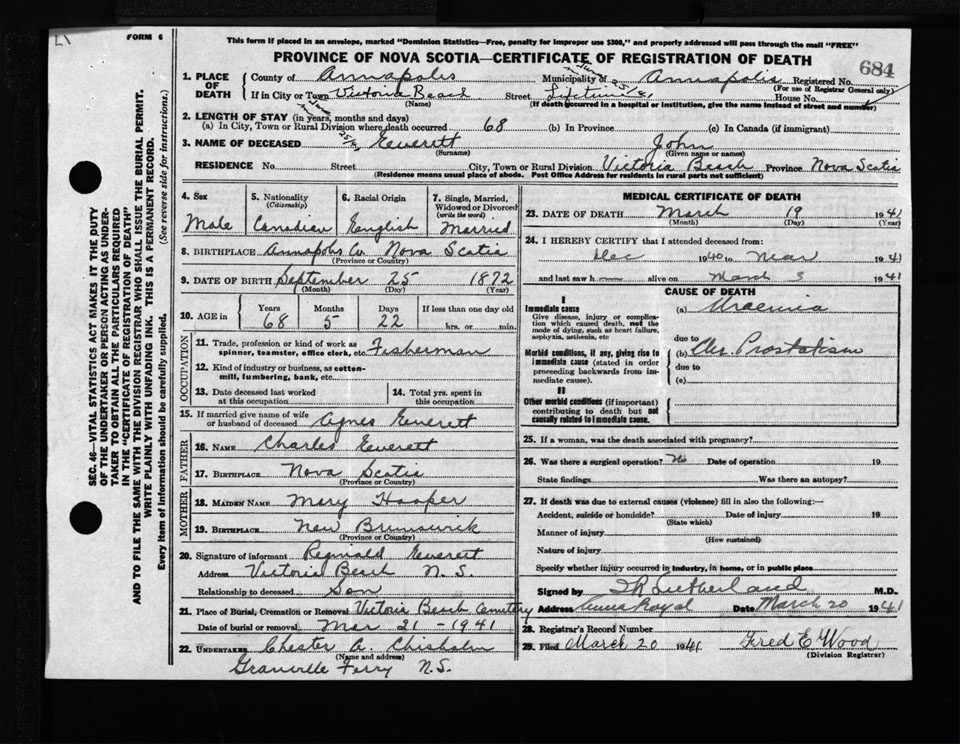 FORM 6
This form if placed in an envelope, marked "Dominion Statistics—Free, penalty for improper use $300," and properly addressed will pass through the mail "FREE"
PROVINCE OF NOVA SCOTIA—CERTIFICATE OF REGISTRATION OF DEATH
684
SEC. 46—VITAL STATISTICS ACT MAKES IT THE DUTY
OF THE UNDERTAKER OR PERSON ACTING AS UNDER-
TAKER TO OBTAIN ALL THE PARTICULARS REQUIRED
IN THE "CERTIFICATE OF REGISTRATION OF DEATH"
AND TO FILE THE SAME WITH THE DIVISION REGISTRAR WHO SHALL ISSUE THE BURIAL PERMIT.
WRITE PLAINLY WITH UNFADING INK. THIS IS A PERMANENT RECORD.
Every item of information should be carefully supplied. (See reverse side for instructions.)
1. PLACE OF DEATH County of Annapolis Municipality of Annapolis Registered No.
(For use of Registrar General only)
If in City or Town Victoria Beach Street Lifetime House No.
(Name) (If death occurred in a hospital or institution, give the name instead of street and number)
2. LENGTH OF STAY (in years, months and days)
(a) In City, Town or Rural Division where death occurred 68 (b) In Province (c) In Canada (if immigrant)
3. NAME OF DECEASED Everett John
(Surname) (Given name or names)
RESIDENCE No. Street City, Town or Rural Division Victoria Beach Province Nova Scotia
(Residence means usual place of abode. Post Office Address for residents in rural parts not sufficient)
4. Sex 5. Nationality (Citizenship) 6. Racial Origin 7. Single, Married, Widowed or Divorced (write the word)
Male Canadian English Married
8. BIRTHPLACE Annapolis Co Nova Scotia
(Province or Country)
9. DATE OF BIRTH September 25 1872
(Month) (Day) (Year)
10. AGE in Years Months Days If less than one day old
68 5 22 hrs. or min.
OCCUPATION
11. Trade, profession or kind of work as
spinner, teamster, office clerk, etc. Fisherman
12. Kind of industry or business, as cotton-
mill, lumbering, bank, etc.
13. Date deceased last worked at this occupation 14. Total yrs. spent in this occupation
15. If married give name of wife
or husband of deceased Agnes Everett
FATHER
16. NAME Charles Everett
17. BIRTHPLACE Nova Scotia
(Province or Country)
MOTHER
18. MAIDEN NAME Mary Hooper
19. BIRTHPLACE New Brunswick
(Province or Country)
20. Signature of informant Reginald Everett
Address Victoria Beach N. S.
Relationship to deceased Son
21. Place of Burial, Cremation or Removal Victoria Beach Cemetery
Date of burial or removal Mar 21 - 1941
22. UNDERTAKER Chester A. Chisholm
(Name and address)
Granville Ferry N.S.
MEDICAL CERTIFICATE OF DEATH
23. DATE OF DEATH March 19 1941
(Month) (Day) (Year)
24. I HEREBY CERTIFY that I attended deceased from:
Dec 1940 to Mar 1941
and last saw h alive on March 3 1941
CAUSE OF DEATH
I
Immediate cause
Give disease, injury or complica-
tion which caused death, not the
mode of dying, such as heart failure,
asphyxia, asthenia, etc
(a) Uraemia
due to
Morbid conditions, if any, giving rise to
immediate cause (stated in order
proceeding backwards from im-
mediate cause).
(b) Chr. Prostatism
due to
(c)
II
Other morbid conditions (if important)
contributing to death but not
causally related to immediate cause.
25. If a woman, was the death associated with pregnancy?
26. Was there a surgical operation? No Date of operation 19
State findings Was there an autopsy?
27. If death was due to external causes (violence) fill in also the following:—
Accident, suicide or homicide? Date of injury 19
(State which)
Manner of injury
(How sustained)
Nature of injury
Specify whether injury occurred in industry, in home, or in public place
Signed by Sutherland M.D.
Address Anna Royal Date March 20 1941
28. Registrar's Record Number
29. Filed March 20 1941 Fred E Wood
(Division Registrar)